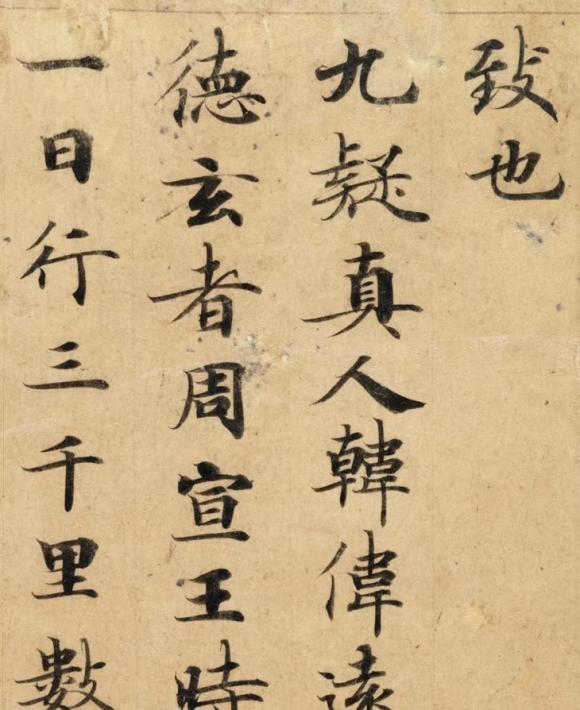 致也
九疑真人韓偉遠
德玄者周宣王時
一日行三千里數